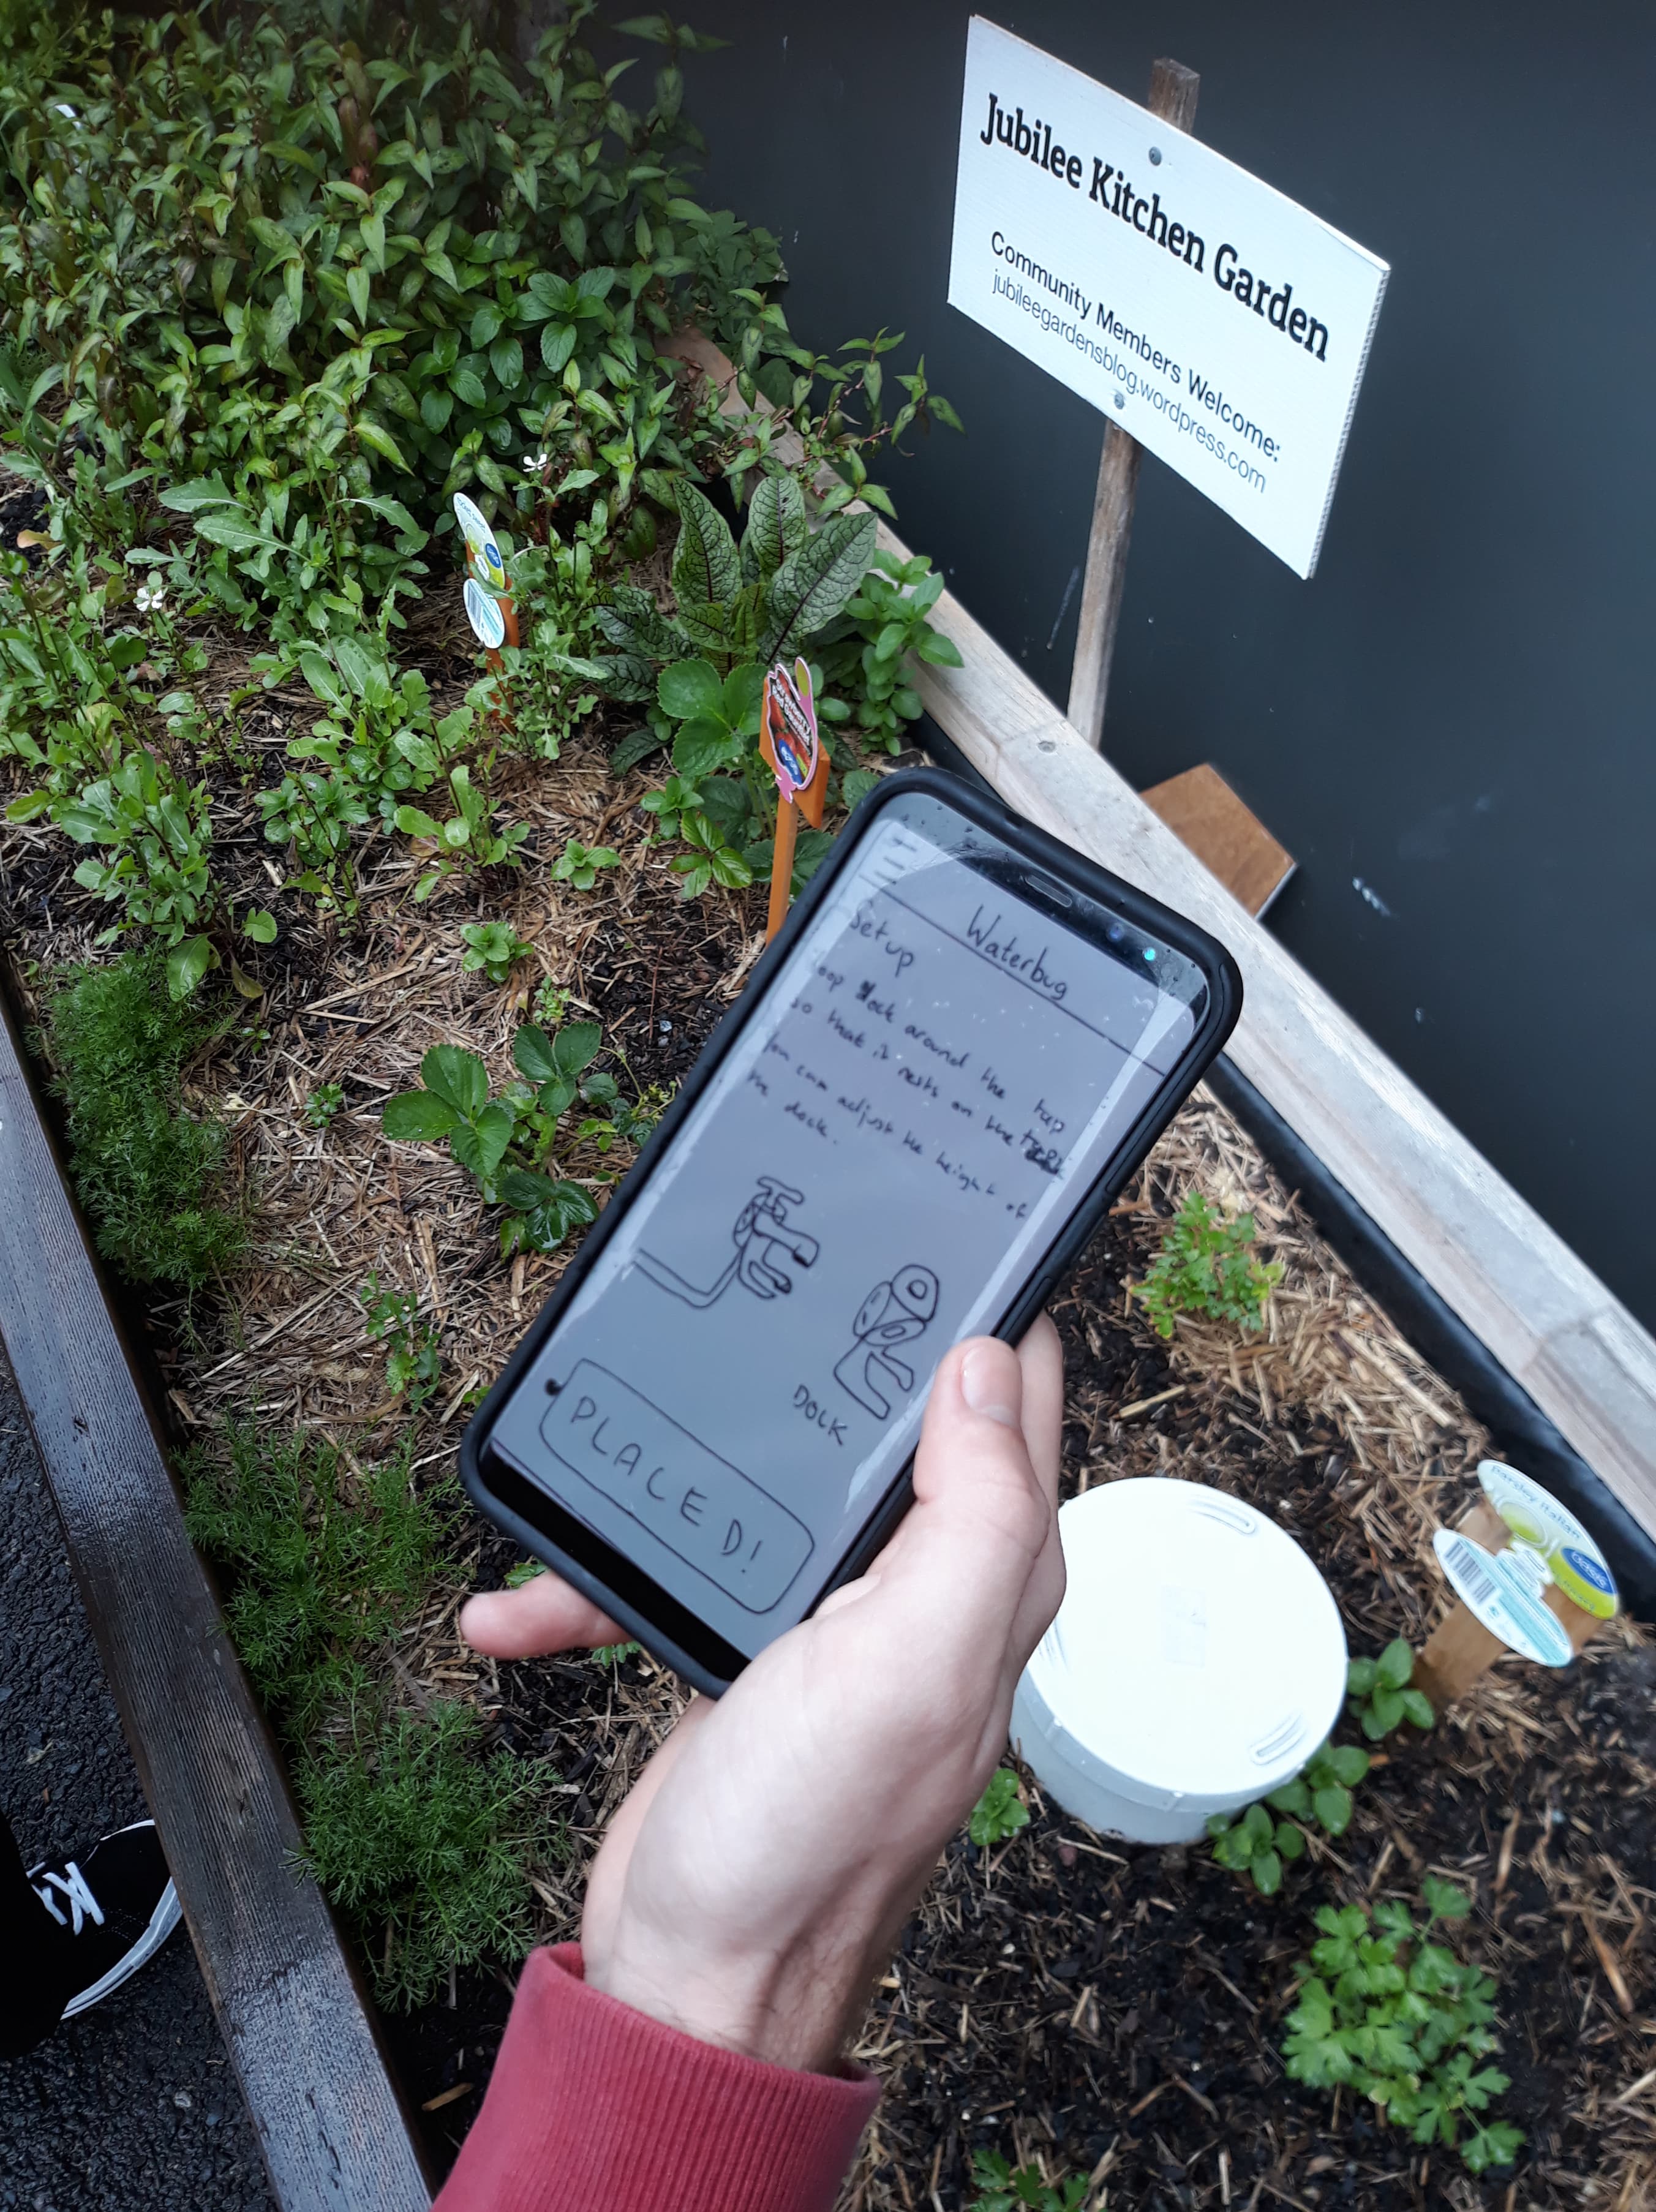 Jubilee Kitchen Garden
Community Members Welcome:
jubileegardensblog.wordpress.com
Waterbug
Setup
Loop dock around the tap
so that it rests on the
You can adjust the height of
the dock.
DOCK
PLACED!
Parsley Italian